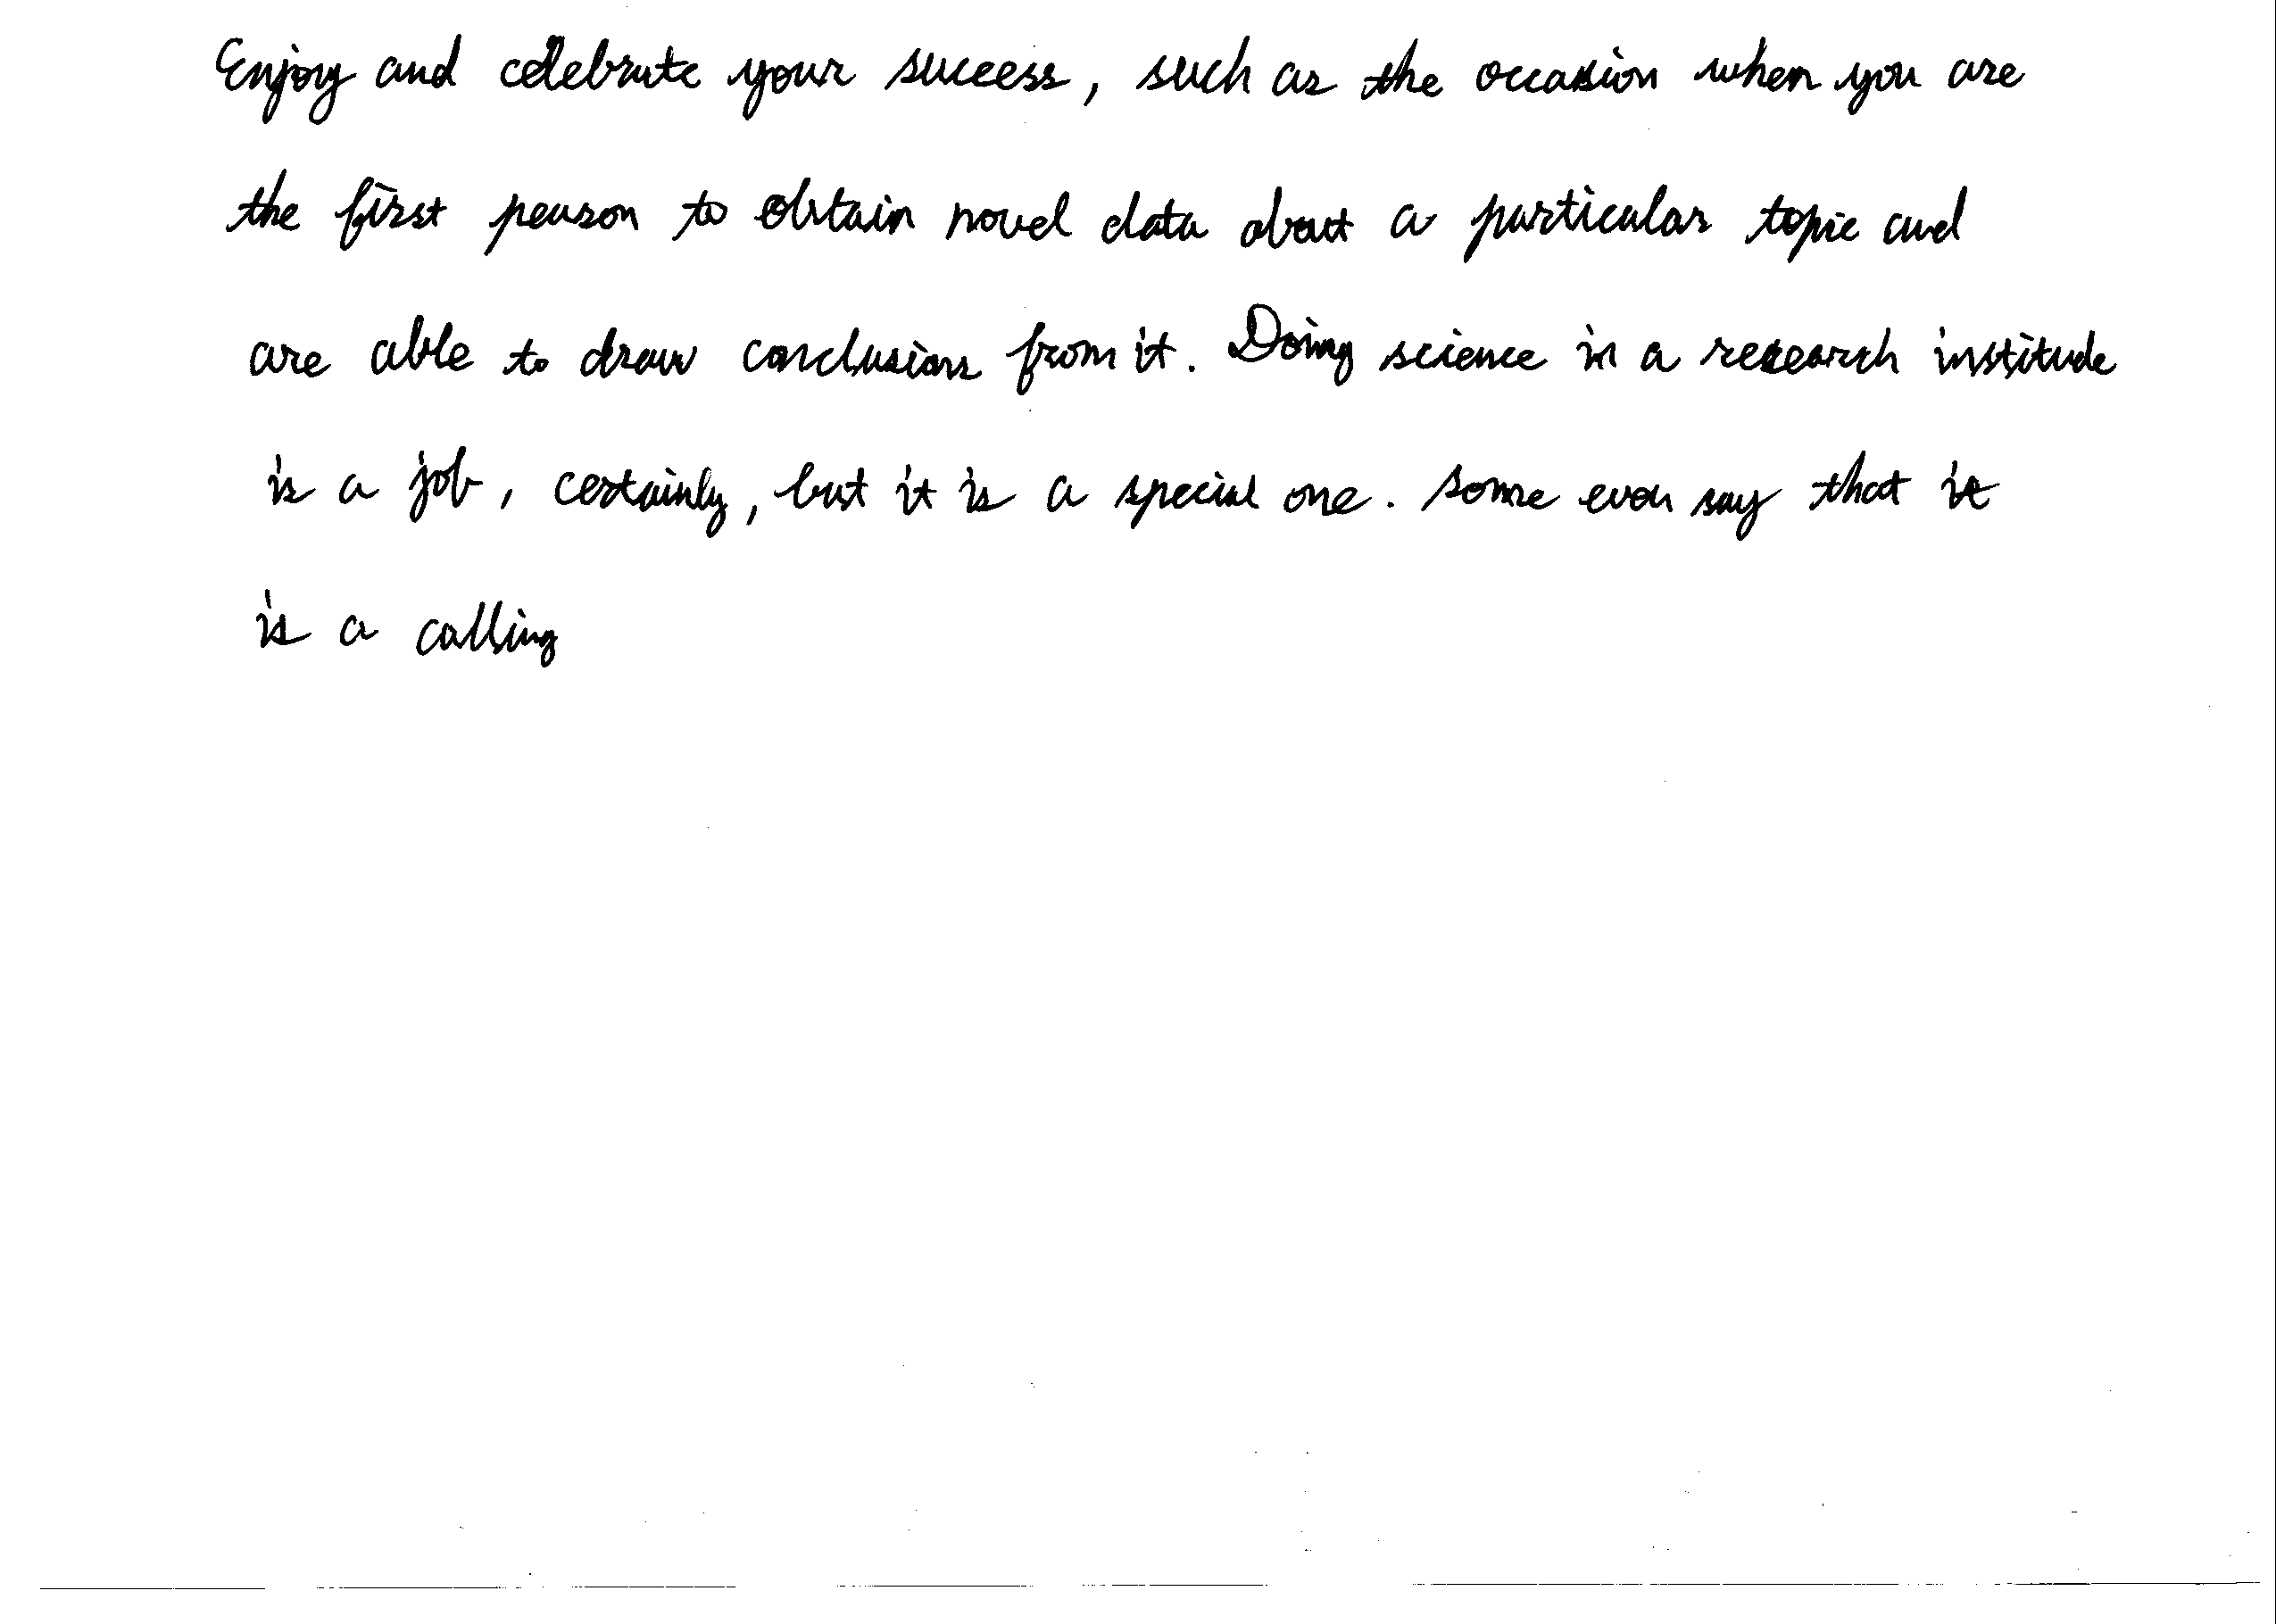 Enjoy and celebrate your success, such as the occasion when you are
the first person to obtain novel data about a particular topic and
are able to draw conclusions from it. Doing science in a research institude
is a job, certainly, but it is a special one. some even say that it
is a calling